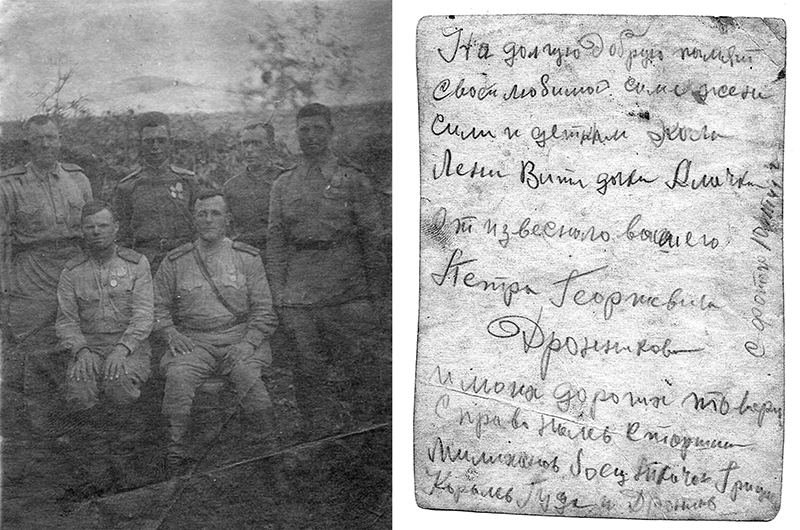 На долгую добрую памят
своей любимой семе жени
Сили и деткам Коля
Лени Вити дочки Алочки
От извесного вашего
Петра Георгевича
Дрожжкова
и мои дорогии товари
С права налев старшина
Милиханов боец Ткачок Гриша
Королев Гуда и
С фотка